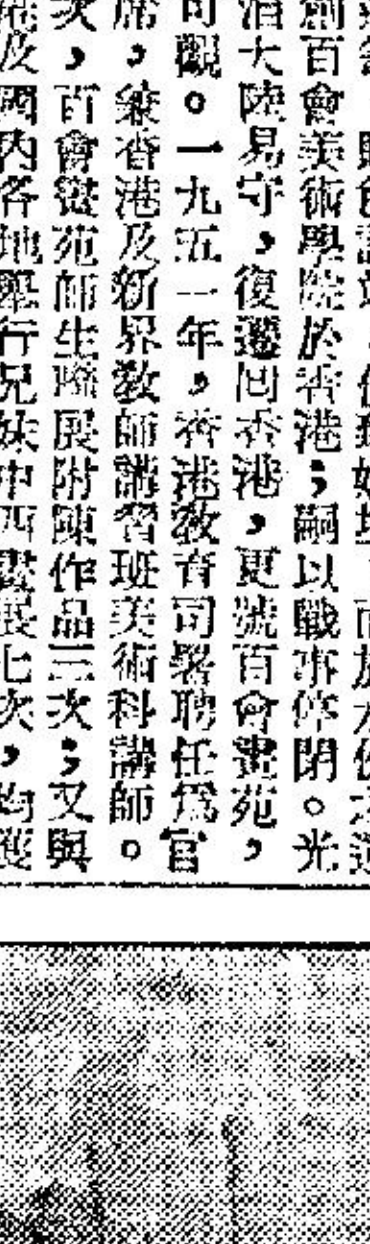 創百會美術學院於香港；嗣以戰事停閉。光
大陸易守，復遷回香港，更號百會畫苑，
可觀。一九五一年，香港教育司署聘任爲官
席，兼香港及新界教師講習班美術科講師。
次，百會畫苑師生聯展附陳作品三次；又與
及國內各地舉行兄妹中西畫展七次，均獲